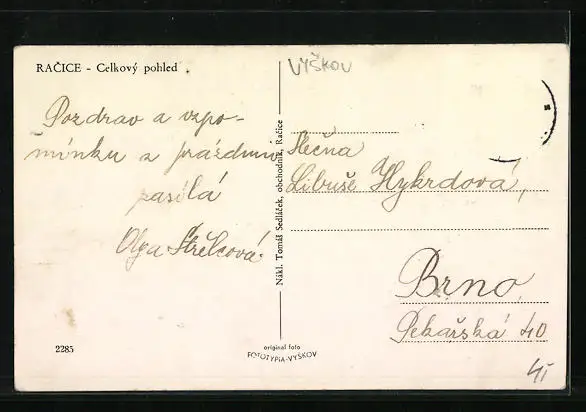 RAČICE - Celkový pohled
VYŠKOV
Pozdrav a vzpo-
mínku z prázdnin
zasílá
Olga Střelcová.
Nákl. Tomáš Sedláček, obchodník, Račice
Slečna
Libuše Hykrdová,
Brno
Pekařská 40
2285
original foto
FOTOTYPIA-VYŠKOV